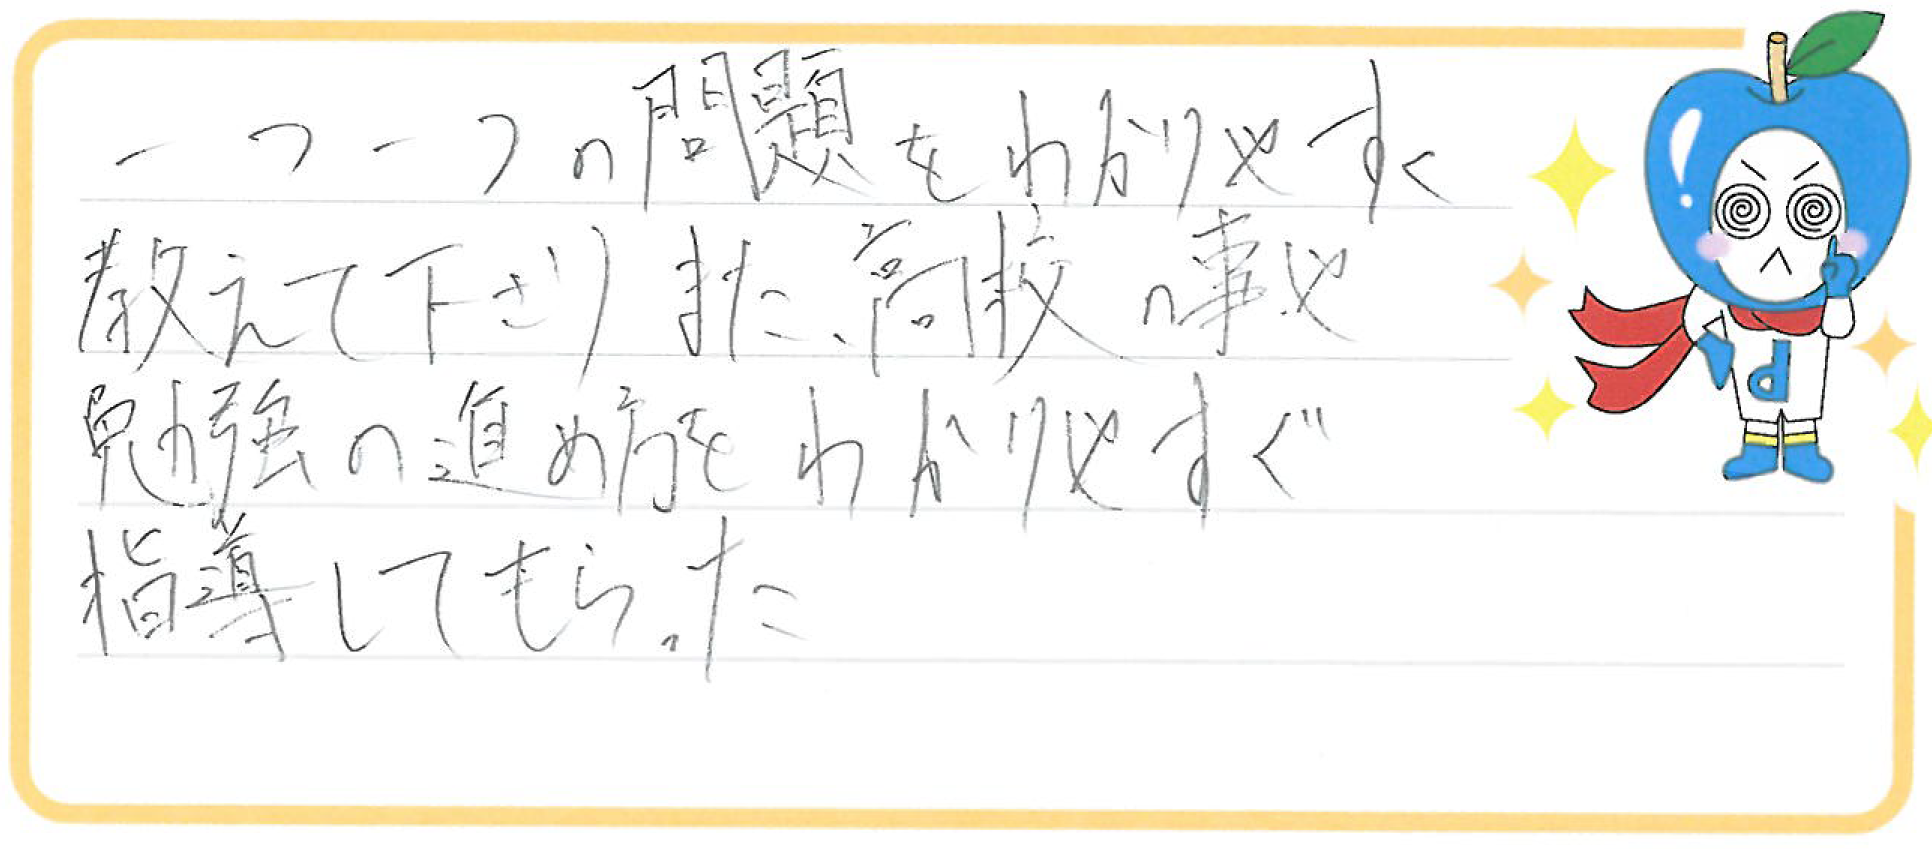 一つ一つの問題をわかりやすく
教えて下さり また、高校の事や
勉強の進め方をわかりやすぐ
指導してもらった
d